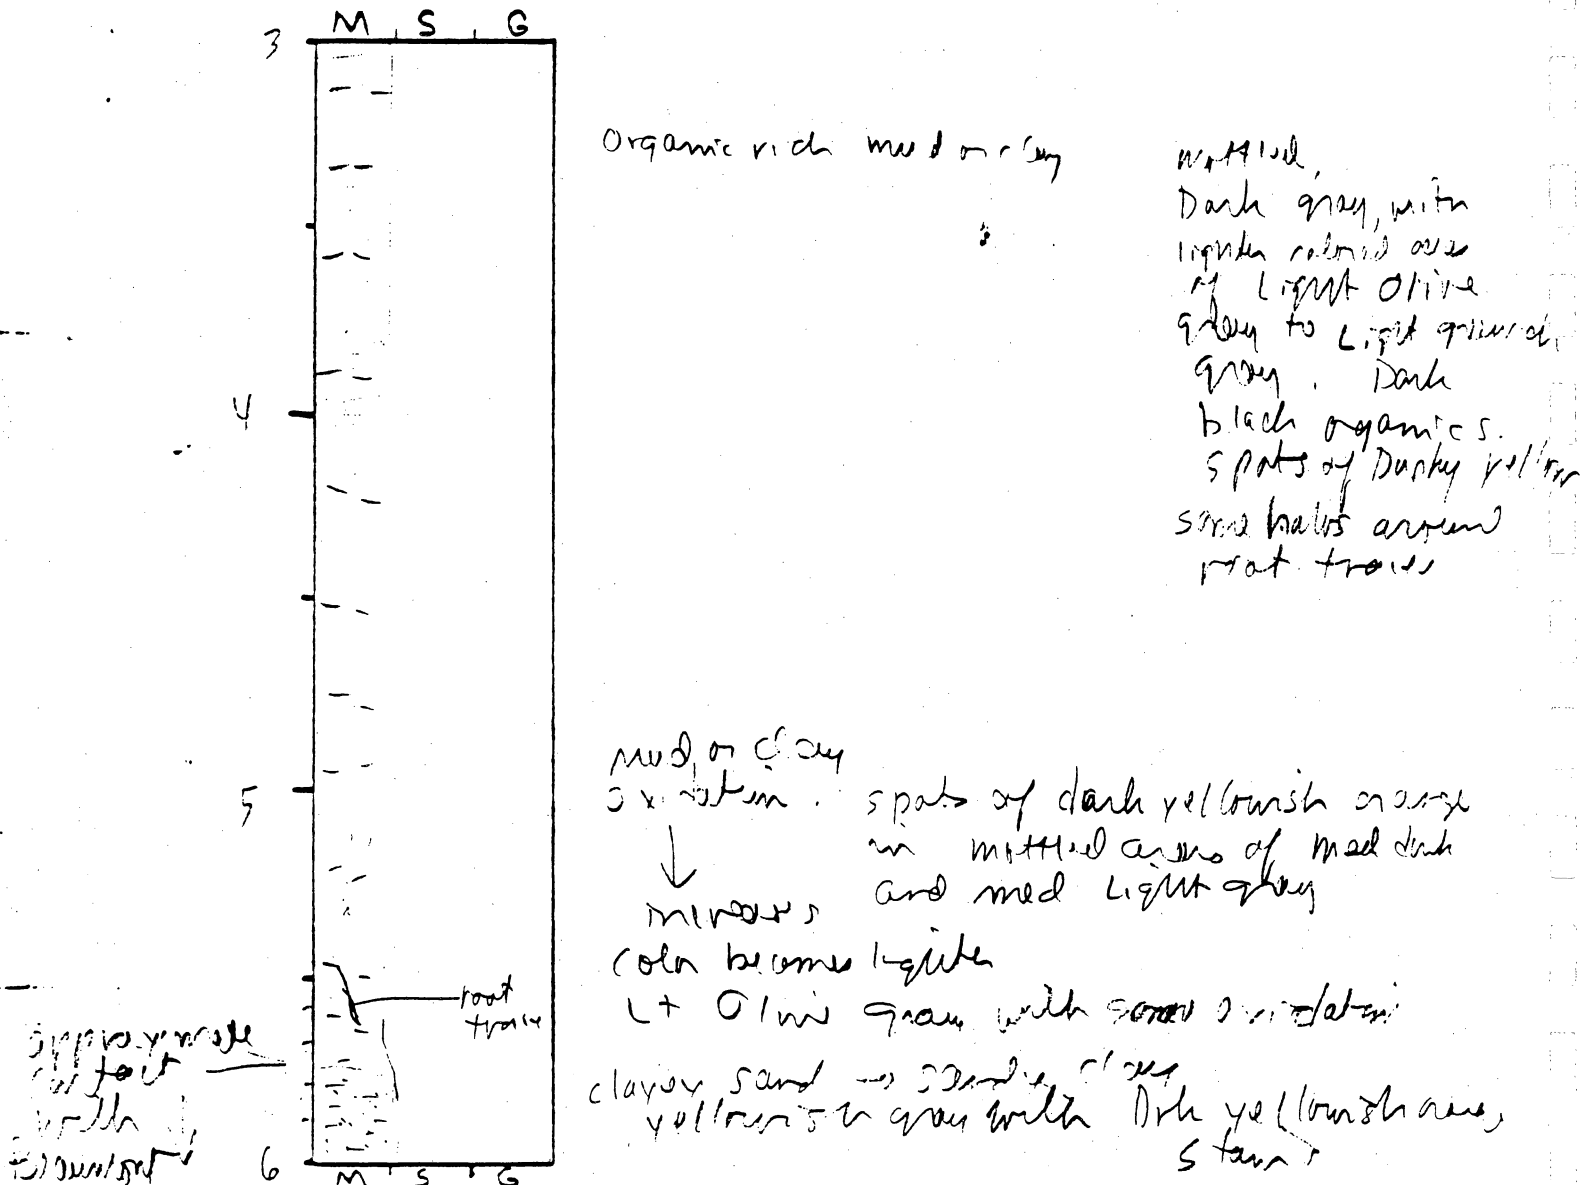 M S G
3
Organic rich mud or clay
Mottled,
Dark gray, with
lighter colored areas
of Light Olive
gray to Light greenish
gray. Dark
4
black organics.
spots of Dusky yellow
some halos around
root traces
Mud or clay
oxidation. spots of dark yellowish orange
5
in mottled areas of med dark
and med Light gray
increases
color becomes lighter
root
trace
Lt Olive gray with some oxidation
approximate
contact
with
clayey sand
yellowish gray with Drk yellowish
stains
6
M S G